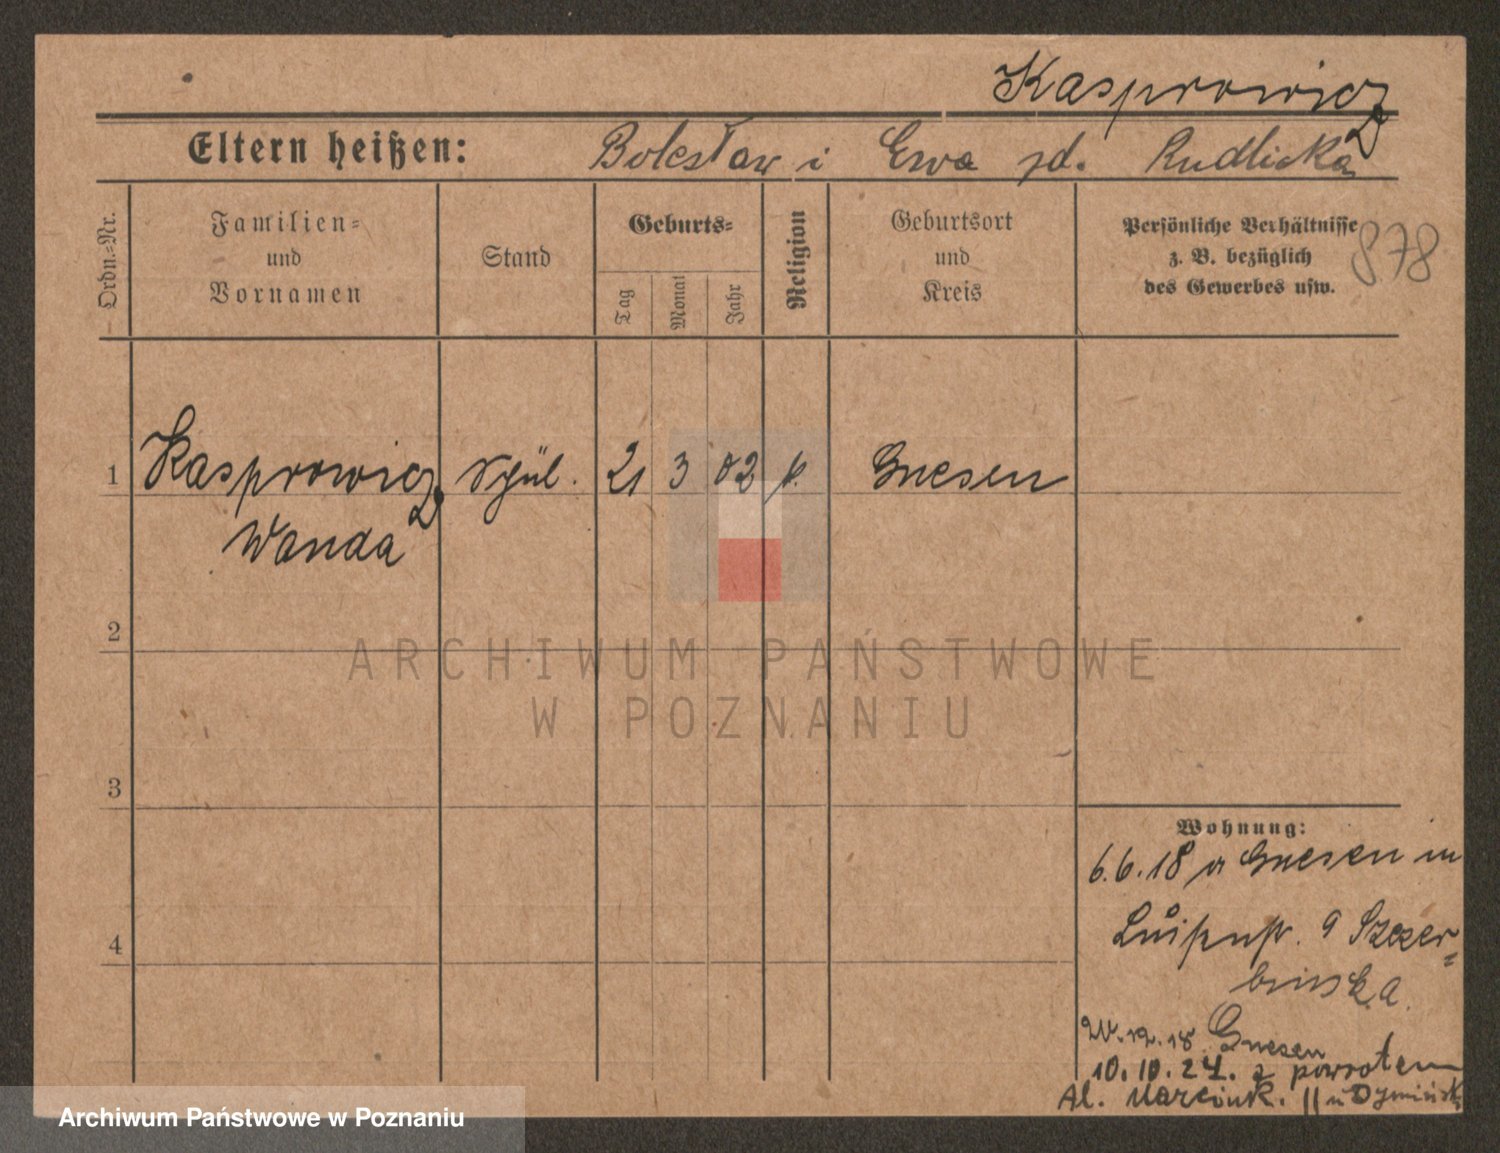 Kasprowicz
Eltern heißen: Bolesław i Ewa zd. Rudlicka
Ordn.-Nr.
Familien-
und
Vornamen
Stand
Geburts-
Tag
Monat
Jahr
Religion
Geburtsort
und
Kreis
Persönliche Verhältnisse
z. B. bezüglich
des Gewerbes usw.
878
1 Kasprowicz Schül. 21 3 02 k. Gnesen
Wanda
2
ARCHIWUM PAŃSTWOWE
W POZNANIU
3
Wohnung:
6.6.18 v Gnesen in
Luisenstr. 9 Szczer-
binska
12.18 Gnesen
10.10.24. z powrotem
Al. Marcink. 11 u Dymińsk
4
Archiwum Państwowe w Poznaniu